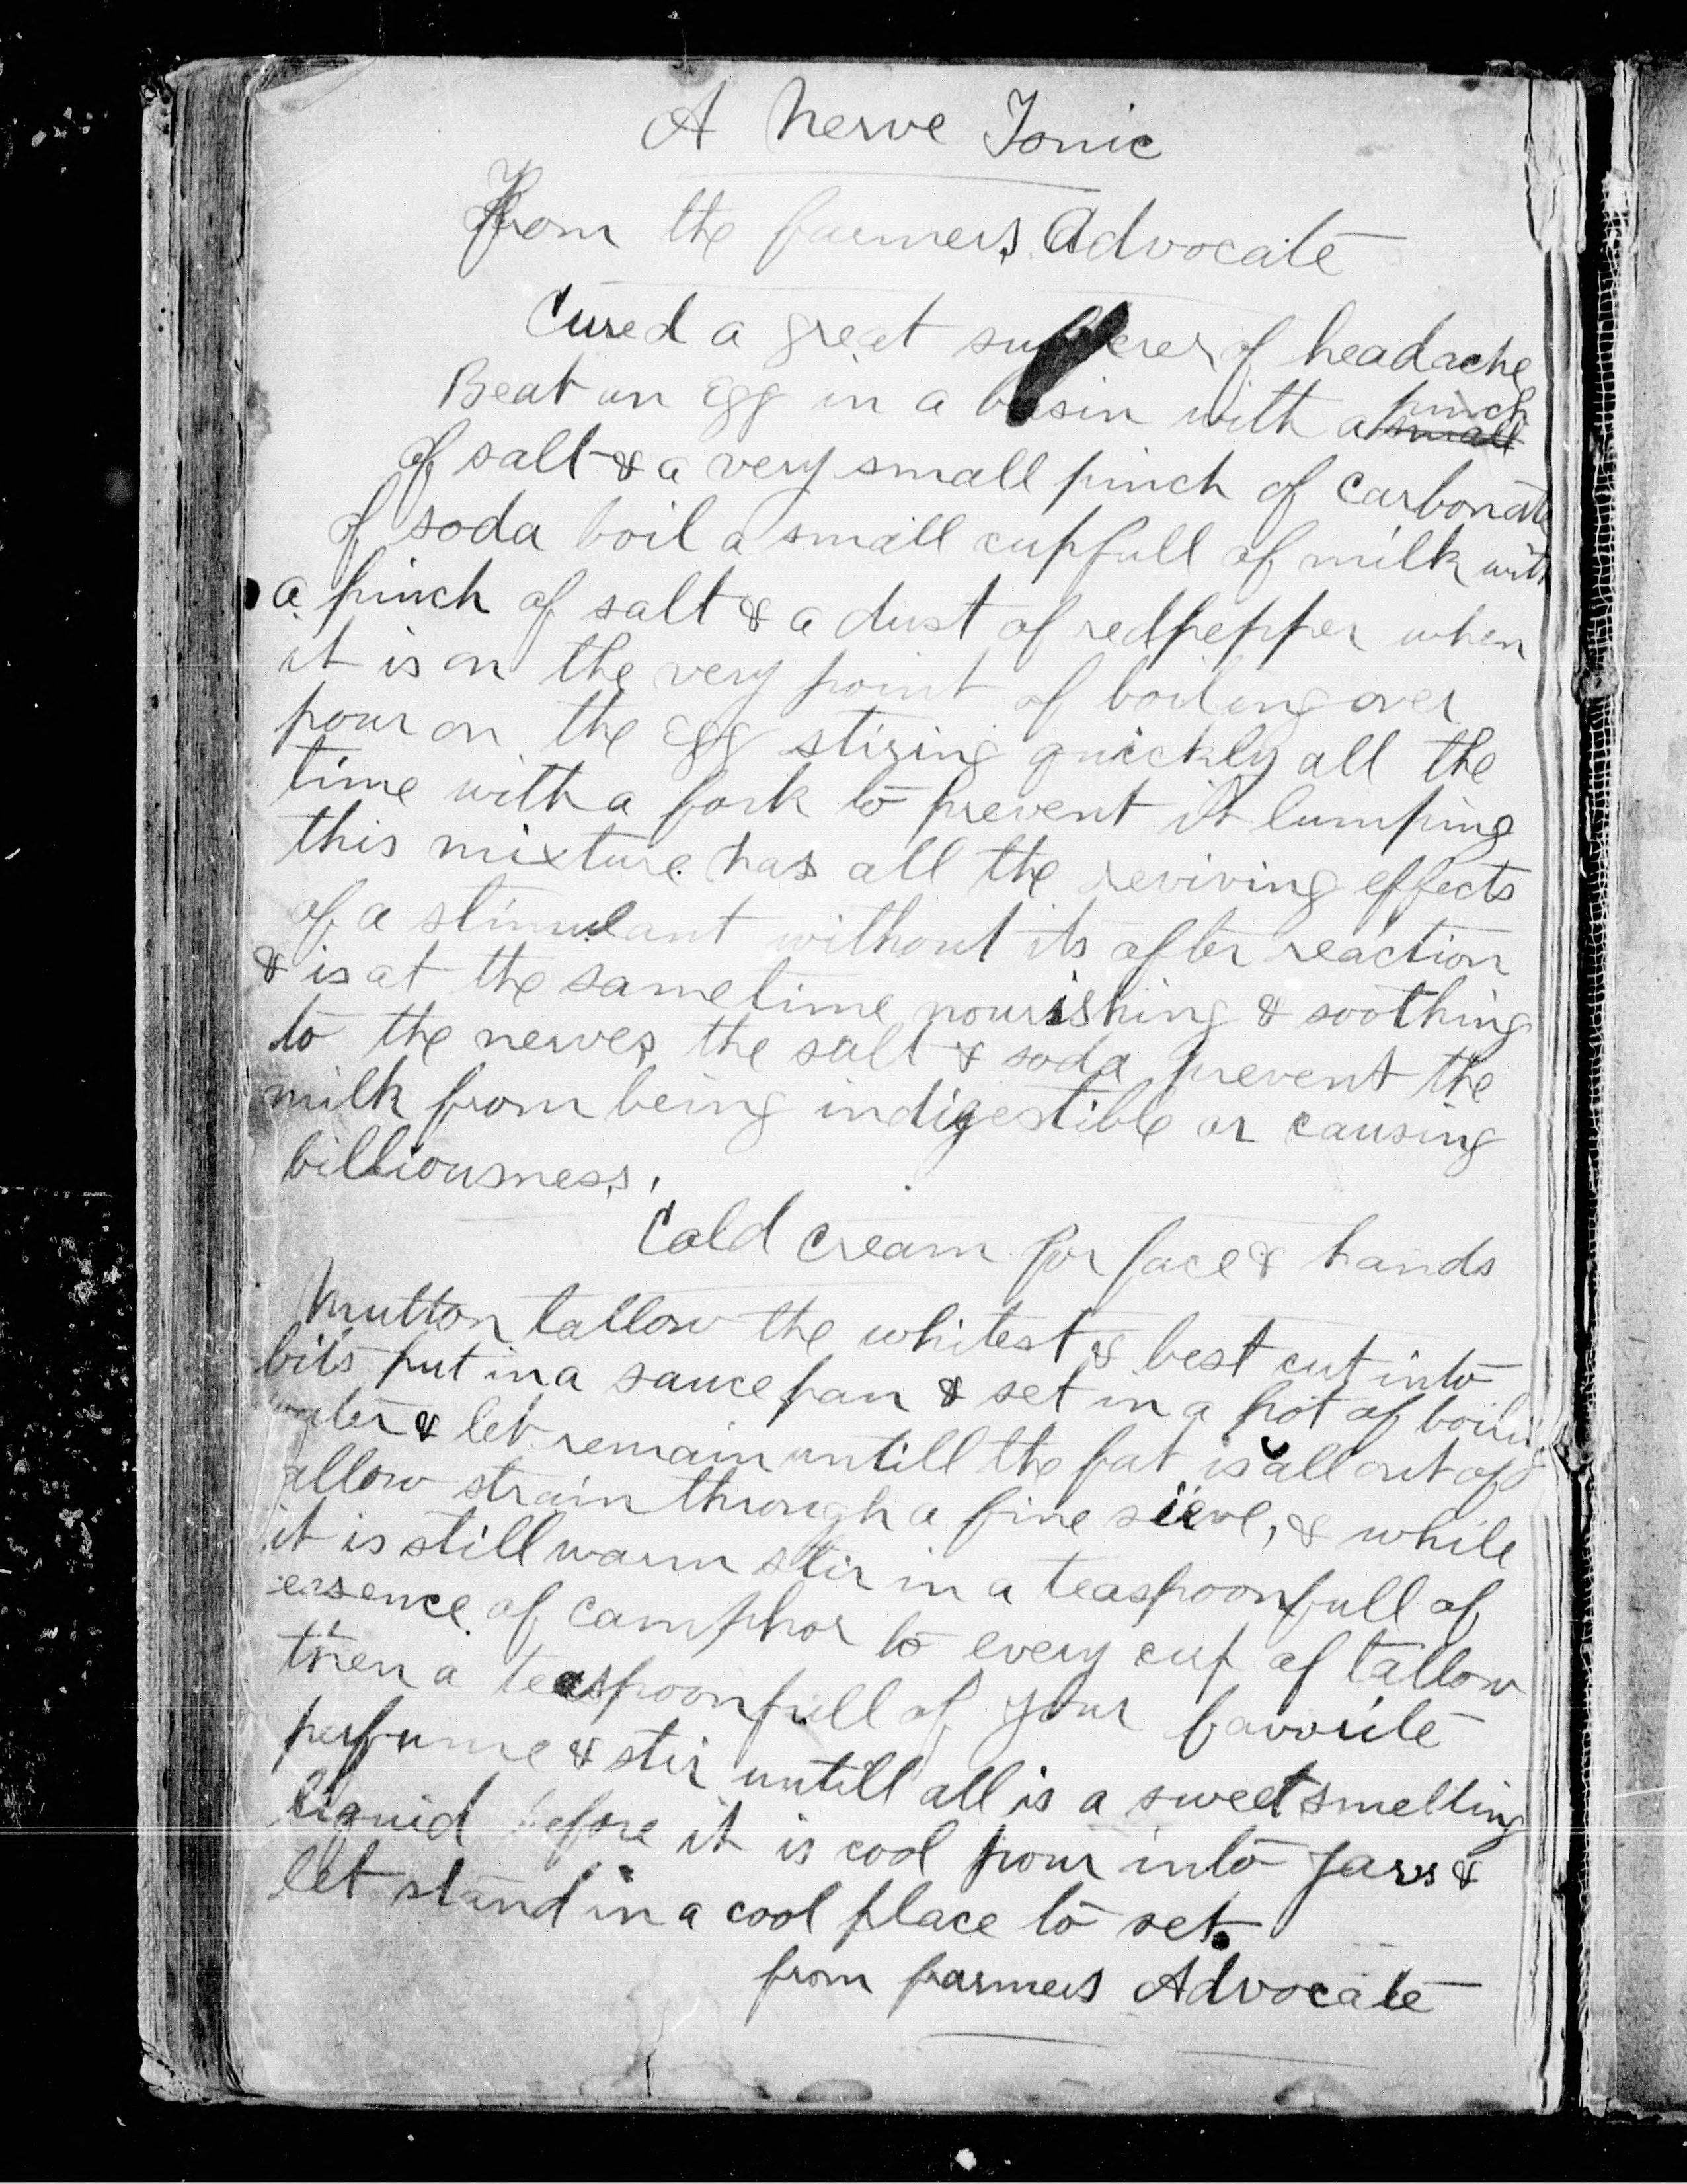 A Nerve Tonic
From the farmers Advocate
Cured a great sufferer of headache
Beat an Egg in a basin with a pinch
small
of salt & a very small pinch of carbonate
of soda boil a small cupfull of milk with
a pinch of salt & a dust of redpepper when
it is on the very point of boiling over
pour on the Egg stiring quickly all the
time with a fork to prevent it lumping
this mixture has all the reviving effects
of a stimulant without its after reaction
& is at the sametime nourishing & soothing
to the nerves, the salt & soda prevent the
milk from being indigestible or causing
billiousness,
Cold Cream for face & hands
Mutton tallow the whitest & best cut into
bits put in a sauce pan & set in a pot of boiling
water & let remain untill the fat is all out of
allow strain through a fine sieve, & while
it is still warm stir in a teaspoonfull of
essence of camphor to every cup of tallow
then a teaspoonfull of your favorite
perfume & stir untill all is a sweet smelling
liquid before it is cool pour into Jars &
let stand in a cool place to set.
from farmers Advocate